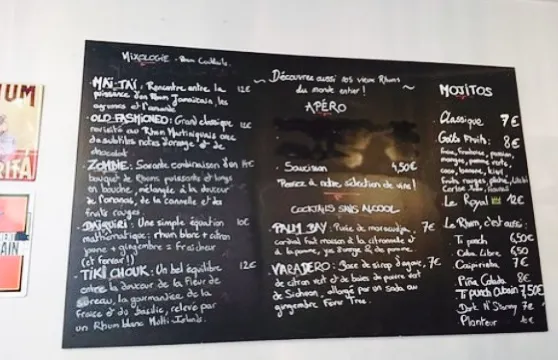 UM
RITA
AIN
MIXOLOGIE - Rum Cocktails.
- MAÏ TAÏ : Rencontre entre la 12€
puissance d'un Rhum Jamaïcain, les
agrumes et l'amande
- OLD FASHIONED : Grand classique 12€
revisité au Rhum Martiniquais avec
de subtiles notes d'orange & de
chocolat
- ZOMBIE : Savante combinaison d'un 14€
bouquet de Rhums puissants et longs
en bouche, mélangée à la douceur
de l'ananas, de la cannelle et des
fruits rouges
- DAÏQUIRI : Une simple équation 10€
mathématique : rhum blanc + citron
jaune + gingembre = Fraîcheur
(et ferveur !)
- TIKI CHOUK : Un bel équilibre 12€
entre la douceur de la Fleur de
Sureau, la gourmandise de la
Fraise et du basilic, relevé par
un Rhum blanc Multi Islands.
~ Découvrez aussi nos vieux Rhums
du monde entier ! ~
APÉRO
- Saucisson 4,50€
Pensez à notre sélection de vins !
COCKTAILS SANS ALCOOL
- PALM BAY : Purée de maracudja, 7€
cordial fait maison à la citronnelle et
à la pomme, jus d'orange & de pomme.
- VARADERO : Base de sirop d'agave, 7€
de citron vert et de baies de poivre vert
de Sichuan, allongé par un soda au
gingembre Fever Tree.
MOJITOS
- Classique 7€
- Goûts Fruits : 8€
Fraise, framboise, passion,
mangue, pomme verte
coco, banane, kiwi
fruits rouges, pêche, litchi
- Le Royal 12€
Le Rhum, c'est aussi :
- Ti punch 6,50€
- Cuba Libre 6,50€
- Caïpirinha 7€
- Piña Colada 8€
- Ti punch cubain 7,50€
- Dark N' Stormy 7€
- Planteur